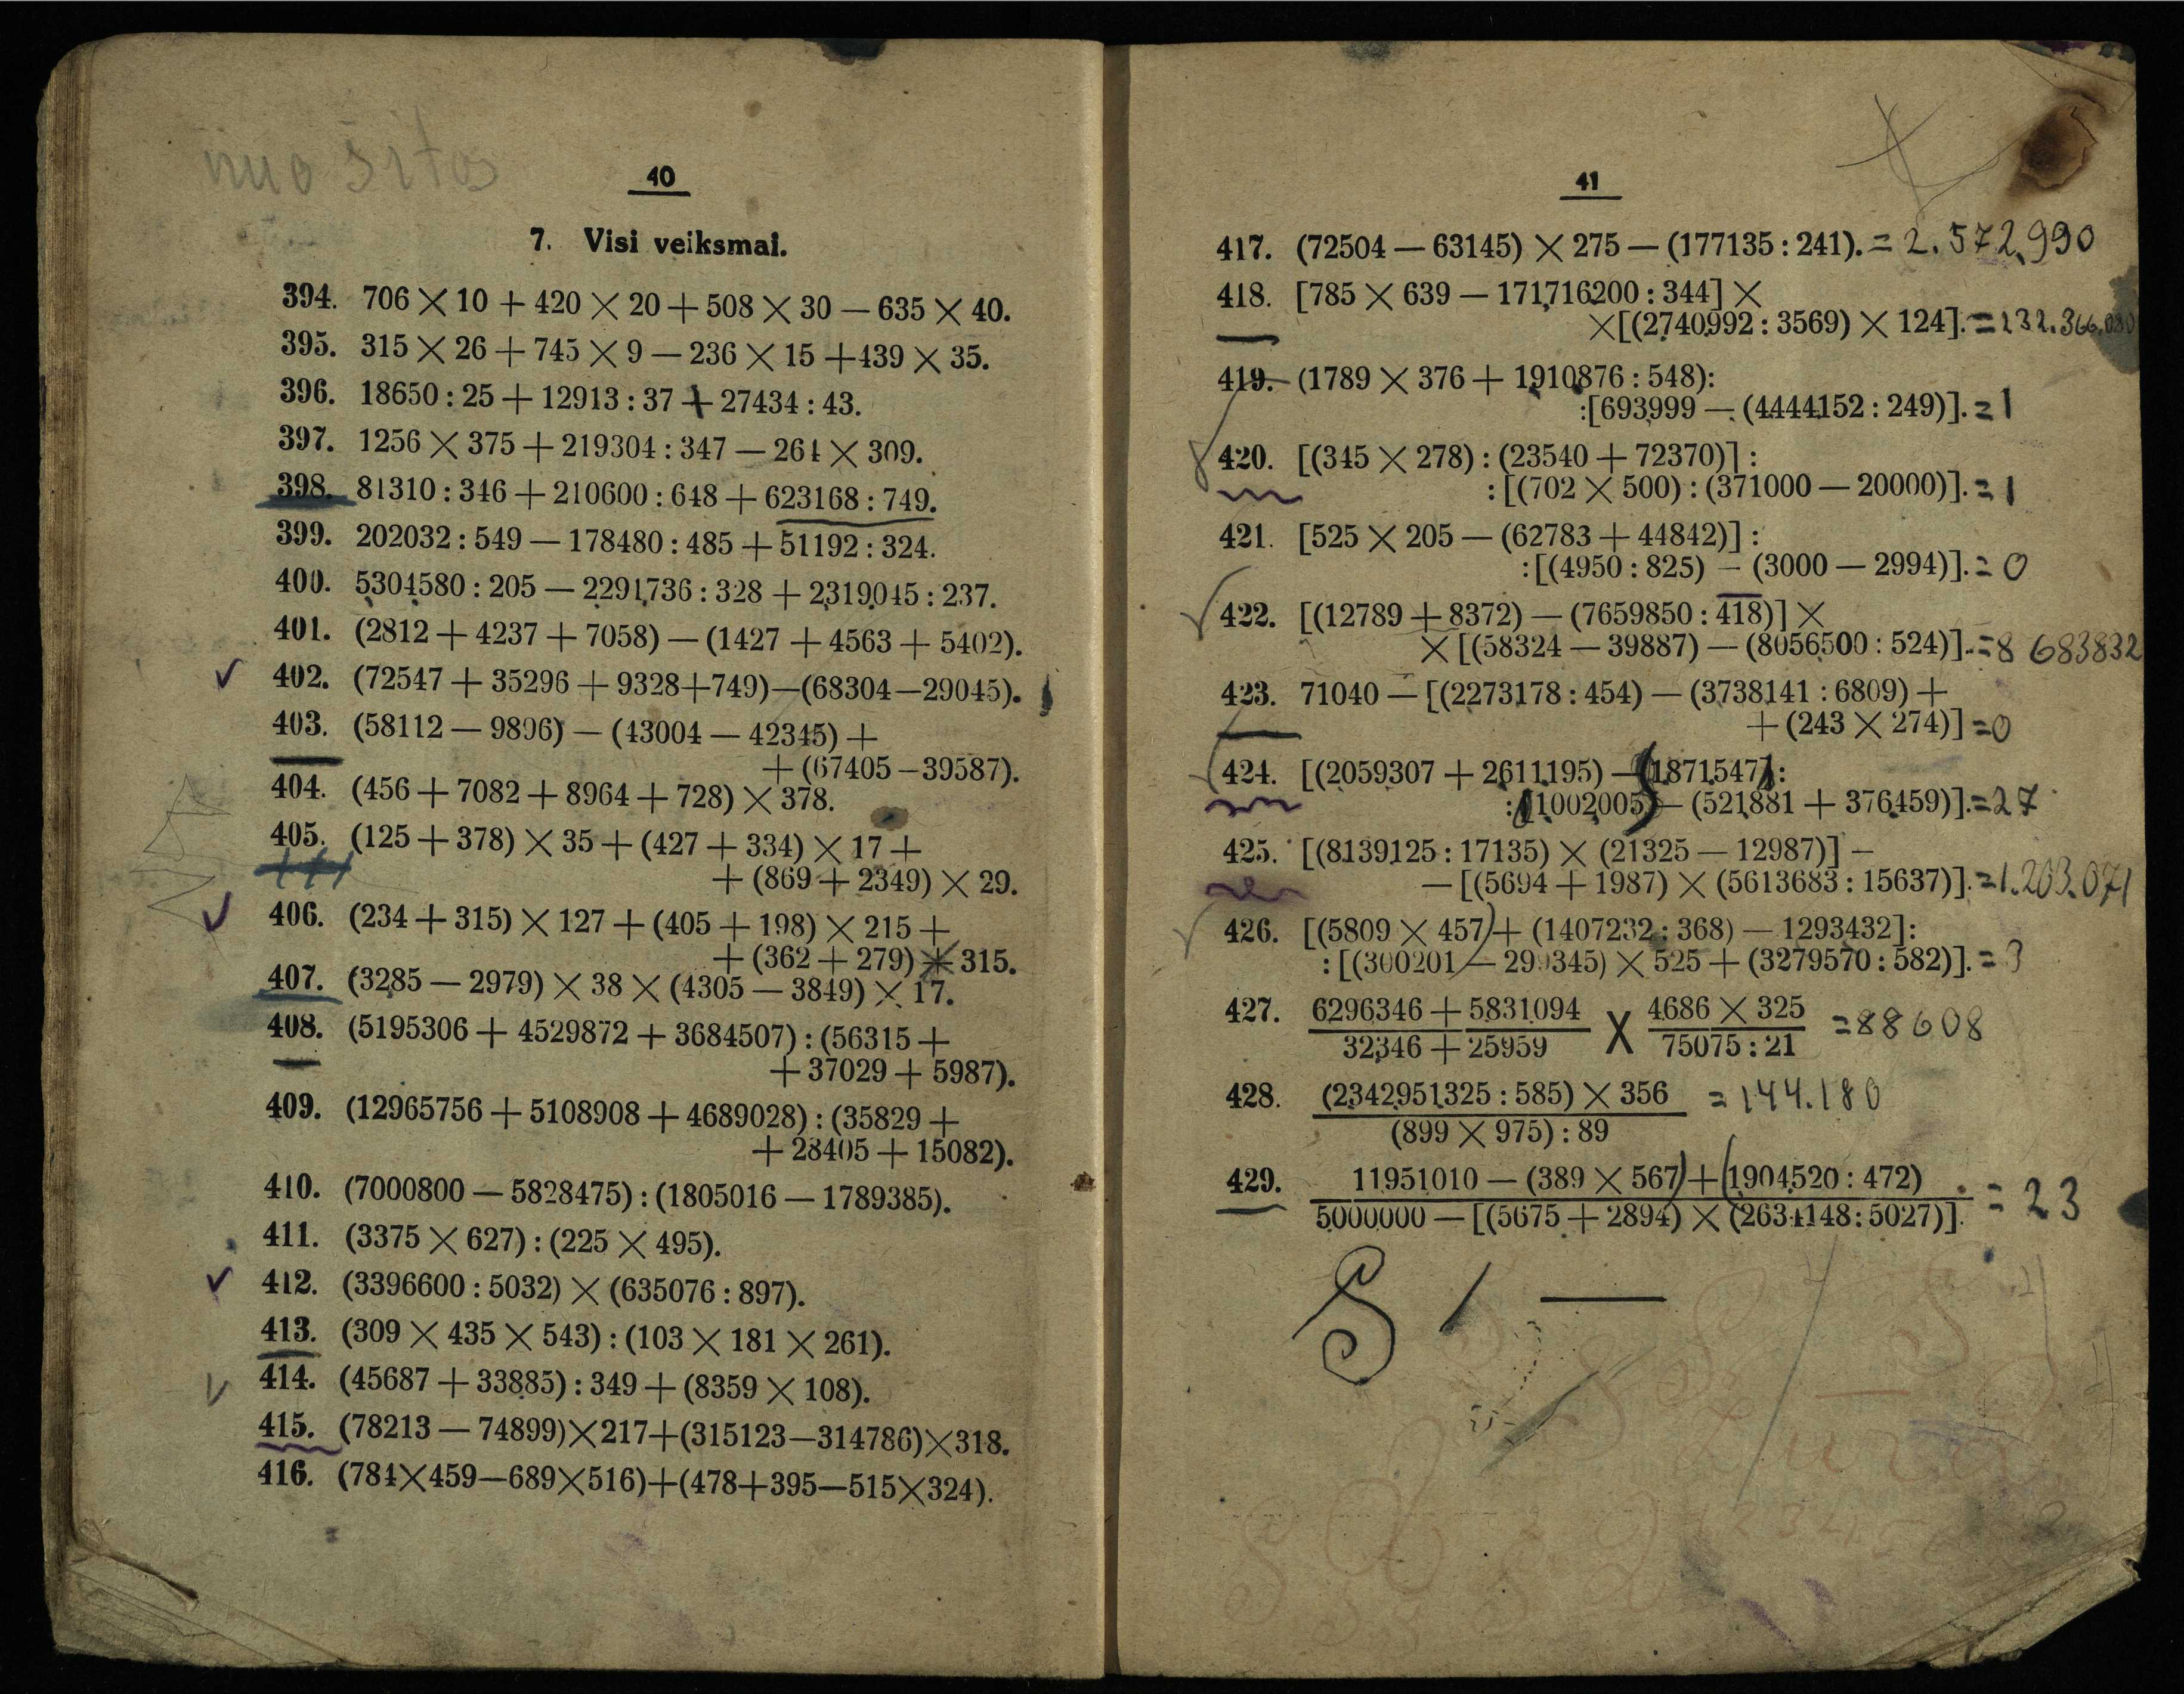 nuo šitos
40
7. Visi veiksmai.
394. 706 × 10 + 420 × 20 + 508 × 30 — 635 × 40.
395. 315 × 26 + 745 × 9 — 236 × 15 + 439 × 35.
396. 18650 : 25 + 12913 : 37 + 27434 : 43.
397. 1256 × 375 + 219304 : 347 — 264 × 309.
398. 81310 : 346 + 210600 : 648 + 623168 : 749.
399. 202032 : 549 — 178480 : 485 + 51192 : 324.
400. 5304580 : 205 — 2291736 : 328 + 2319045 : 237.
401. (2812 + 4237 + 7058) — (1427 + 4563 + 5402).
402. (72547 + 35296 + 9328+749)—(68304—29045).
403. (58112 — 9896) — (43004 — 42345) +
+ (67405 — 39587).
404. (456 + 7082 + 8964 + 728) × 378.
405. (125 + 378) × 35 + (427 + 334) × 17 +
+ (869 + 2349) × 29.
406. (234 + 315) × 127 + (405 + 198) × 215 +
+ (362 + 279) × 315.
407. (3285 — 2979) × 38 × (4305 — 3849) × 17.
408. (5195306 + 4529872 + 3684507) : (56315 +
+ 37029 + 5987).
409. (12965756 + 5108908 + 4689028) : (35829 +
+ 28405 + 15082).
410. (7000800 — 5828475) : (1805016 — 1789385).
411. (3375 × 627) : (225 × 495).
412. (3396600 : 5032) × (635076 : 897).
413. (309 × 435 × 543) : (103 × 181 × 261).
414. (45687 + 33885) : 349 + (8359 × 108).
415. (78213 — 74899)×217+(315123—314786)×318.
416. (784×459—689×516)+(478+395—515×324).
41
417. (72504 — 63145) × 275 — (177135 : 241). = 2.572.990
418. [785 × 639 — 171716200 : 344] ×
×[(2740992 : 3569) × 124]. = 232.366.080
419. (1789 × 376 + 1910876 : 548):
:[693999 — (4444152 : 249)]. = 1
420. [(345 × 278) : (23540 + 72370)] :
: [(702 × 500) : (371000 — 20000)]. = 1
421. [525 × 205 — (62783 + 44842)] :
: [(4950 : 825) — (3000 — 2994)]. = 0
422. [(12789 + 8372) — (7659850 : 418)] ×
× [(58324 — 39887) — (8056500 : 524)]. = 8 683832
423. 71040 — [(2273178 : 454) — (3738141 : 6809) +
+ (243 × 274)] = 0
424. [(2059307 + 2611195) — (1871547):
:[1002005) — (521881 + 376459)]. = 27
425. [(8139125 : 17135) × (21325 — 12987)] —
— [(5694 + 1987) × (5613683 : 15637)]. = 1.203.071
426. [(5809 × 457) + (1407232 : 368) — 1293432]:
: [(300201 — 299345) × 525 + (3279570 : 582)]. = 3
427. 6296346 + 5831094 × 4686 × 325 = 88608
32346 + 25959 75075 : 21
428. (2342951325 : 585) × 356 = 144.180
(899 × 975) : 89
429. 11951010 — (389 × 567) + (1904520 : 472) = 23
5000000 — [(5675 + 2894) × (2634148 : 5027)].